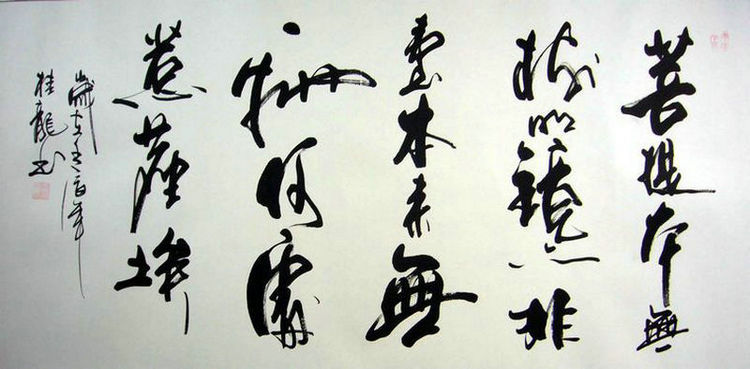 菩提本無
樹明鏡亦非
臺本來無
一物何處
惹塵埃
歲在年
桂龍書